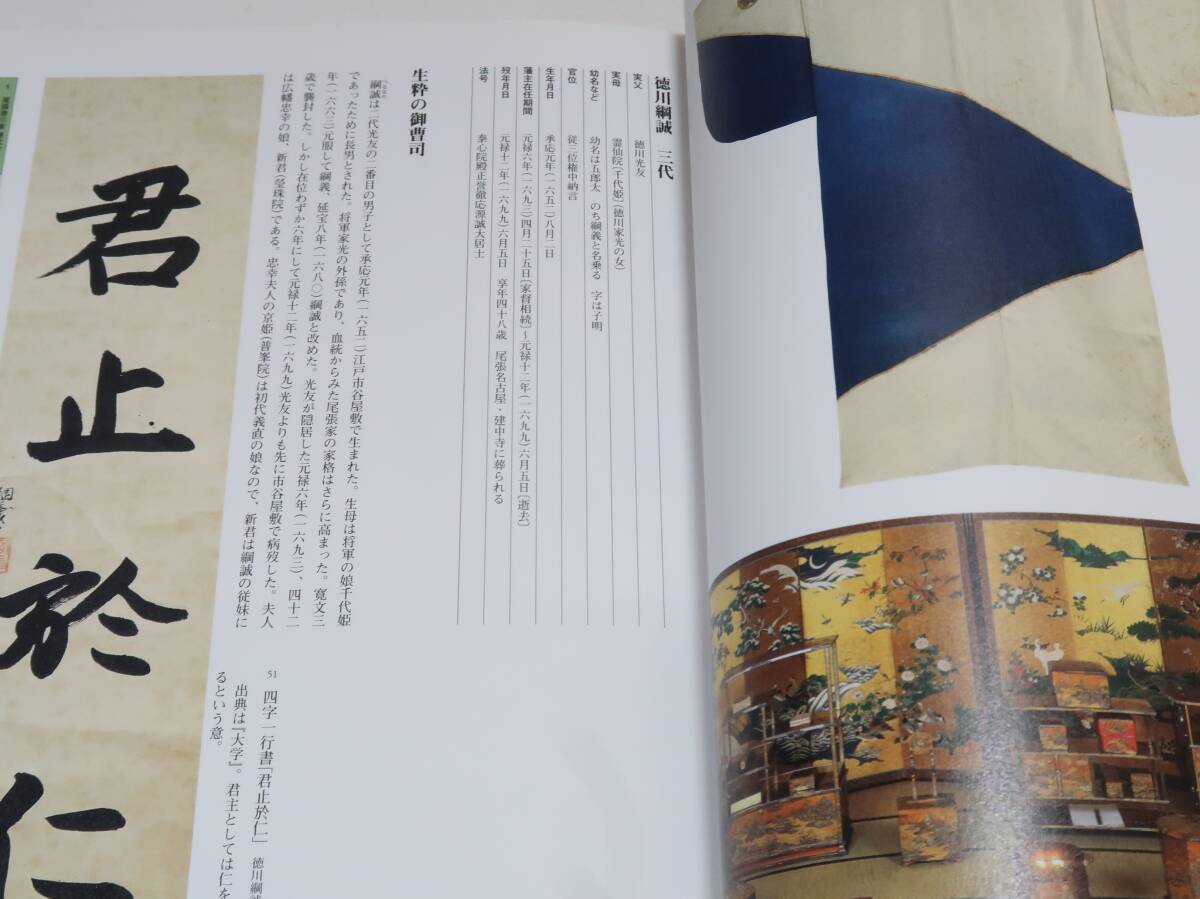 徳川綱誠 三代
実父 徳川光友
実母 霊仙院(千代姫)(徳川家光の女)
幼名など 幼名は五郎太 のち綱義と名乗る 字は子明
官位 従三位権中納言
生年月日 承応元年(一六五二)八月二日
藩主在任期間 元禄六年(一六九三)四月二十五日〔家督相続〕~元禄十二年(一六九九)六月五日〔逝去〕
歿年月日 元禄十二年(一六九九)六月五日 享年四十八歳 尾張名古屋・建中寺に葬られる
法号 泰心院殿正誉徹応源誠大居士
生粋の御曹司
綱誠は二代光友の二番目の男子として承応元年(一六五二)江戸市谷屋敷で生まれた。生母は将軍の娘千代姫
であったために長男とされた。将軍家光の外孫であり、血統からみた尾張家の家格はさらに高まった。寛文三
年(一六六三)元服して綱義、延宝八年(一六八〇)綱誠と改めた。光友が隠居した元禄六年(一六九三)、四十二
歳で襲封した。しかし在位わずか六年にして元禄十二年(一六九九)光友よりも先に市谷屋敷で病歿した。夫人
は広幡忠幸の娘、新君(瑩珠院)である。忠幸夫人の京姫(普峯院)は初代義直の娘なので、新君は綱誠の従妹に
51 四字一行書「君止於仁」 徳川綱誠
出典は『大学』。君主としては仁を
るという意。
君止於仁